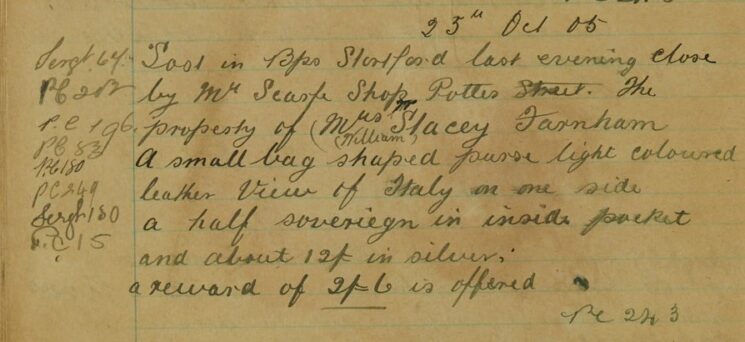 23rd Oct 05
Sergt 64. Lost in Bps Stortford last evening close
PC 202 by Mr Scarfe Shop Potter Street. The
P.C 196 property of Mrs W Stacey Farnham
(William)
PC 83 A small bag shaped purse light coloured
PC 180
PC 249 leather View of Italy on one side
Sergt 130 a half sovereign in inside pocket
P.C 15 and about 12/- in silver.
a reward of 2/6 is offered
PC 243